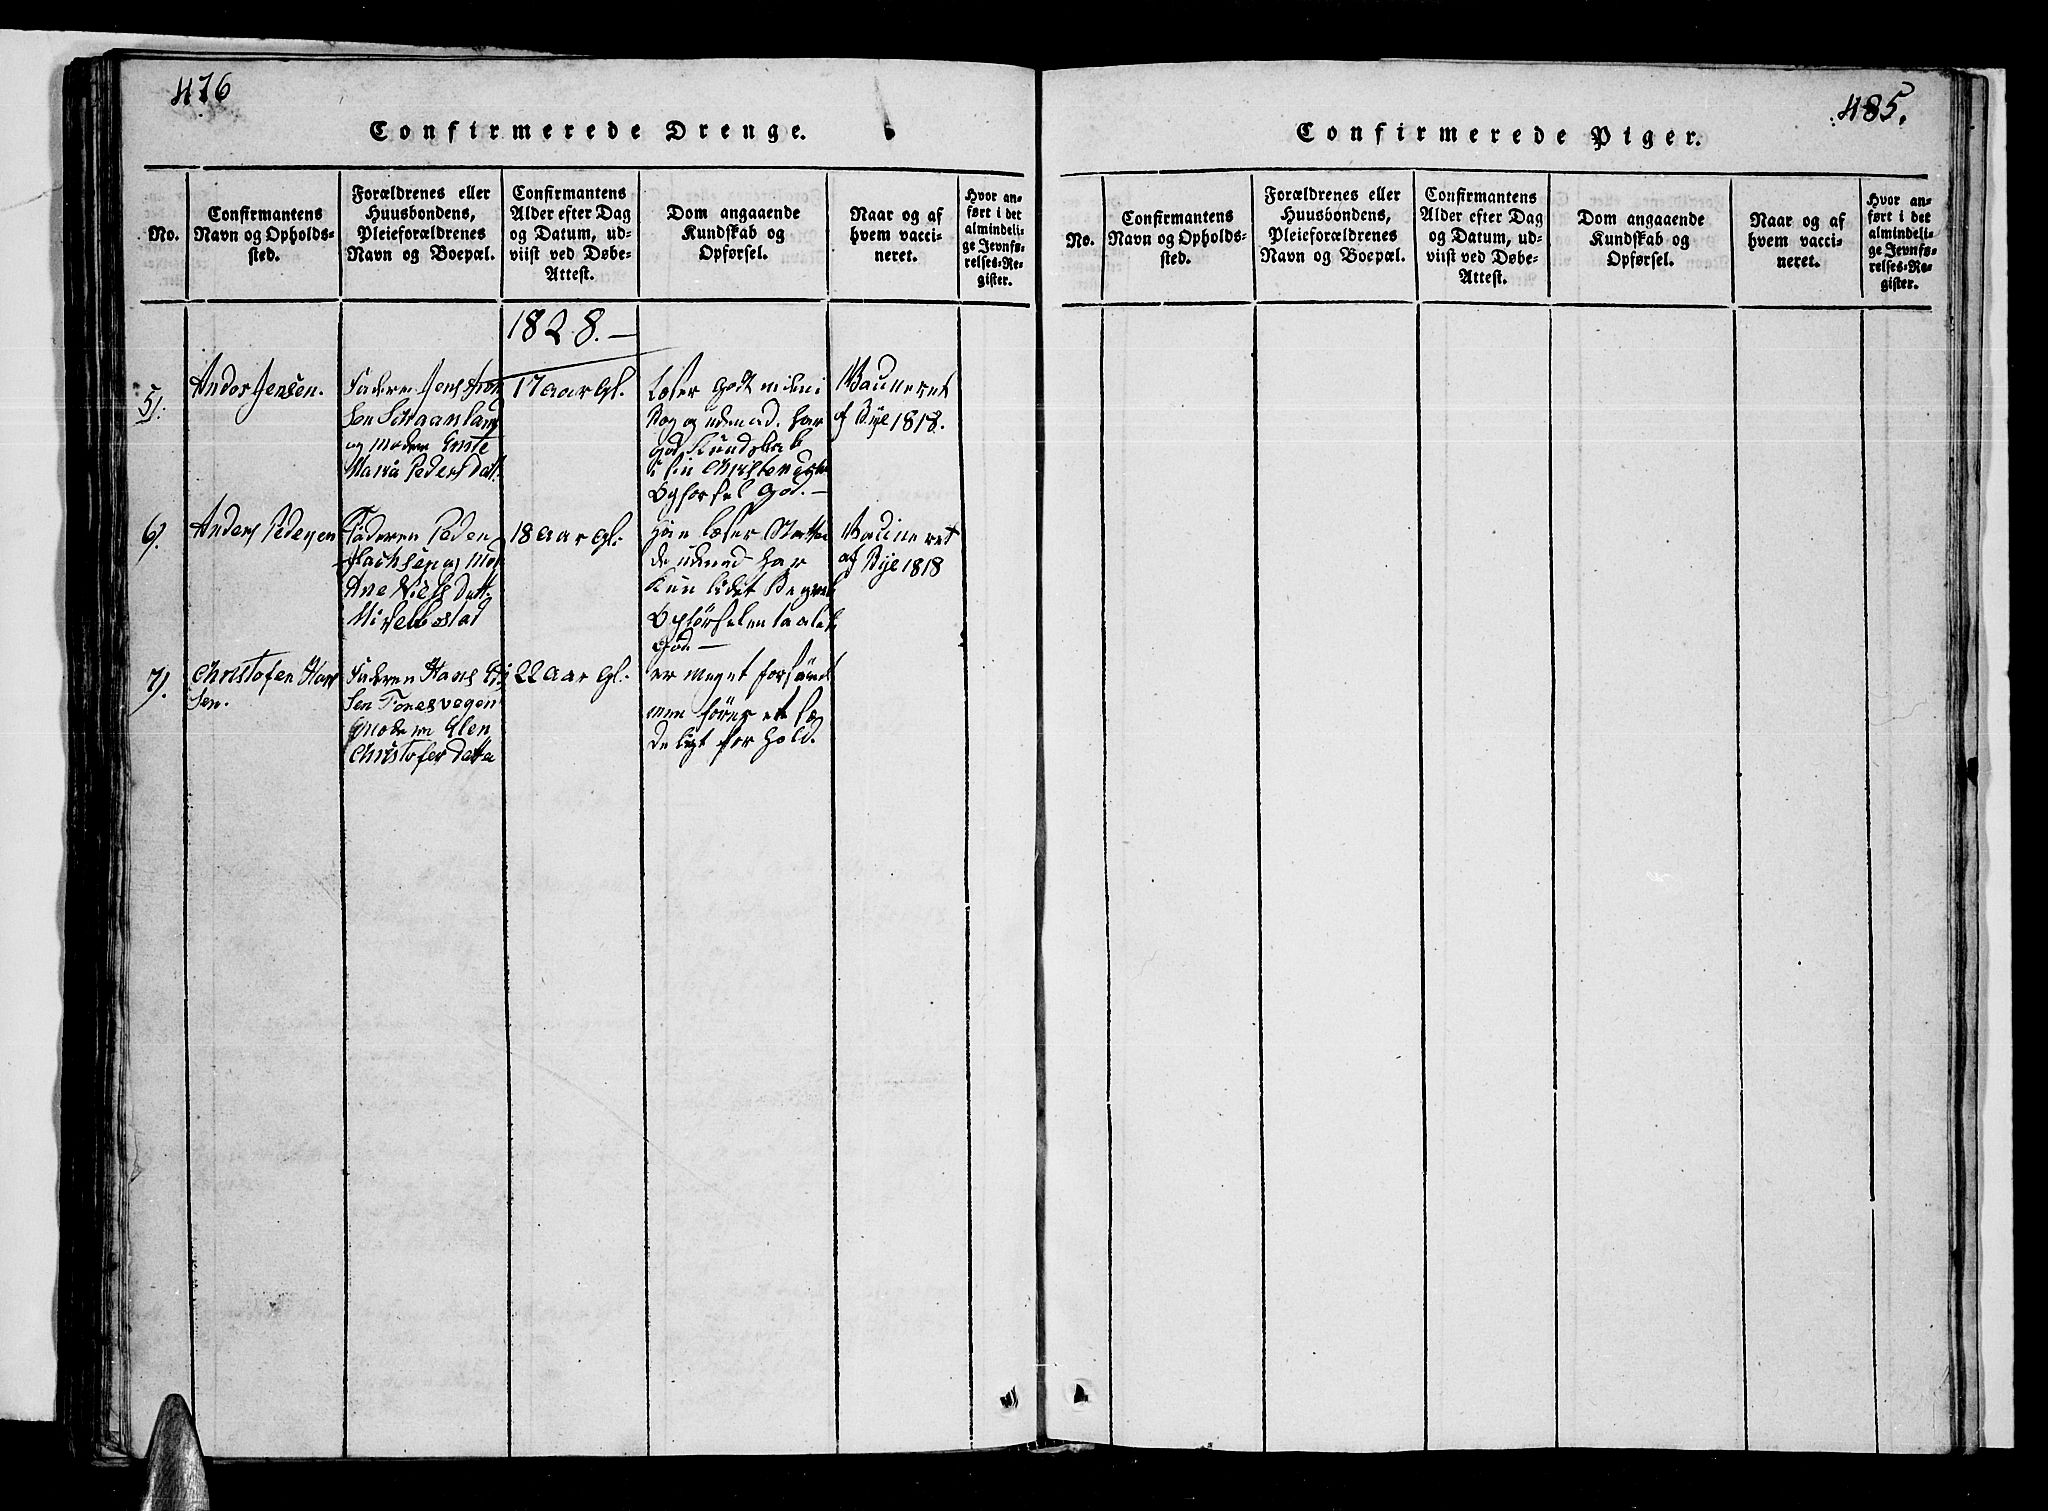 476
Confirmerede Drenge.
No.
Confirmantens
Navn og Opholds-
sted.
Forældrenes eller
Huusbondens,
Pleieforældrenes
Navn og Boepæl.
Confirmantens
Alder efter Dag
og Datum, ud-
viist ved Døbe-
Attest.
Dom angaaende
Kundskab og
Opførsel.
Naar og af
hvem vacci-
neret.
Hvor an-
ført i det
almindeli-
ge Jevnfø-
relses-Re-
gister.
1828.
5).
Andos Jensen.
Faderen Jens
Sen
og Moder
Maria Peders Datt
17 aar Gl.
Læser Godt inden i
Bog og udenad. har
god Kundskab
i sin Christendom
Opførsel God.
Vacineret
af Bye 1818.
6).
Anders Pedersen
Faderen Peder
og Mo
Ane Niels Datt
Mikelbostad
18 aar Gl.
Han læser
de udenad har
Kun lidet Begreb
Opførselen taalelig
God
Vacineret
af Bye 1818
7).
Christofer Han
Sen.
Faderen Hans
Sen Foresvegen
Moderen Elen
Christofer Datte
22 aar Gl.
er Meget forsømt
men fører et Sæ
deligt forhold.
485.
Confirmerede Piger.
No.
Confirmantens
Navn og Opholds-
sted.
Forældrenes eller
Huusbondens,
Pleieforældrenes
Navn og Boepæl.
Confirmantens
Alder efter Dag
og Datum, ud-
viist ved Døbe-
Attest.
Dom angaaende
Kundskab og
Opførsel.
Naar og af
hvem vacci-
neret.
Hvor an-
ført i det
almindeli-
ge Jevnfø-
relses-Re-
gister.